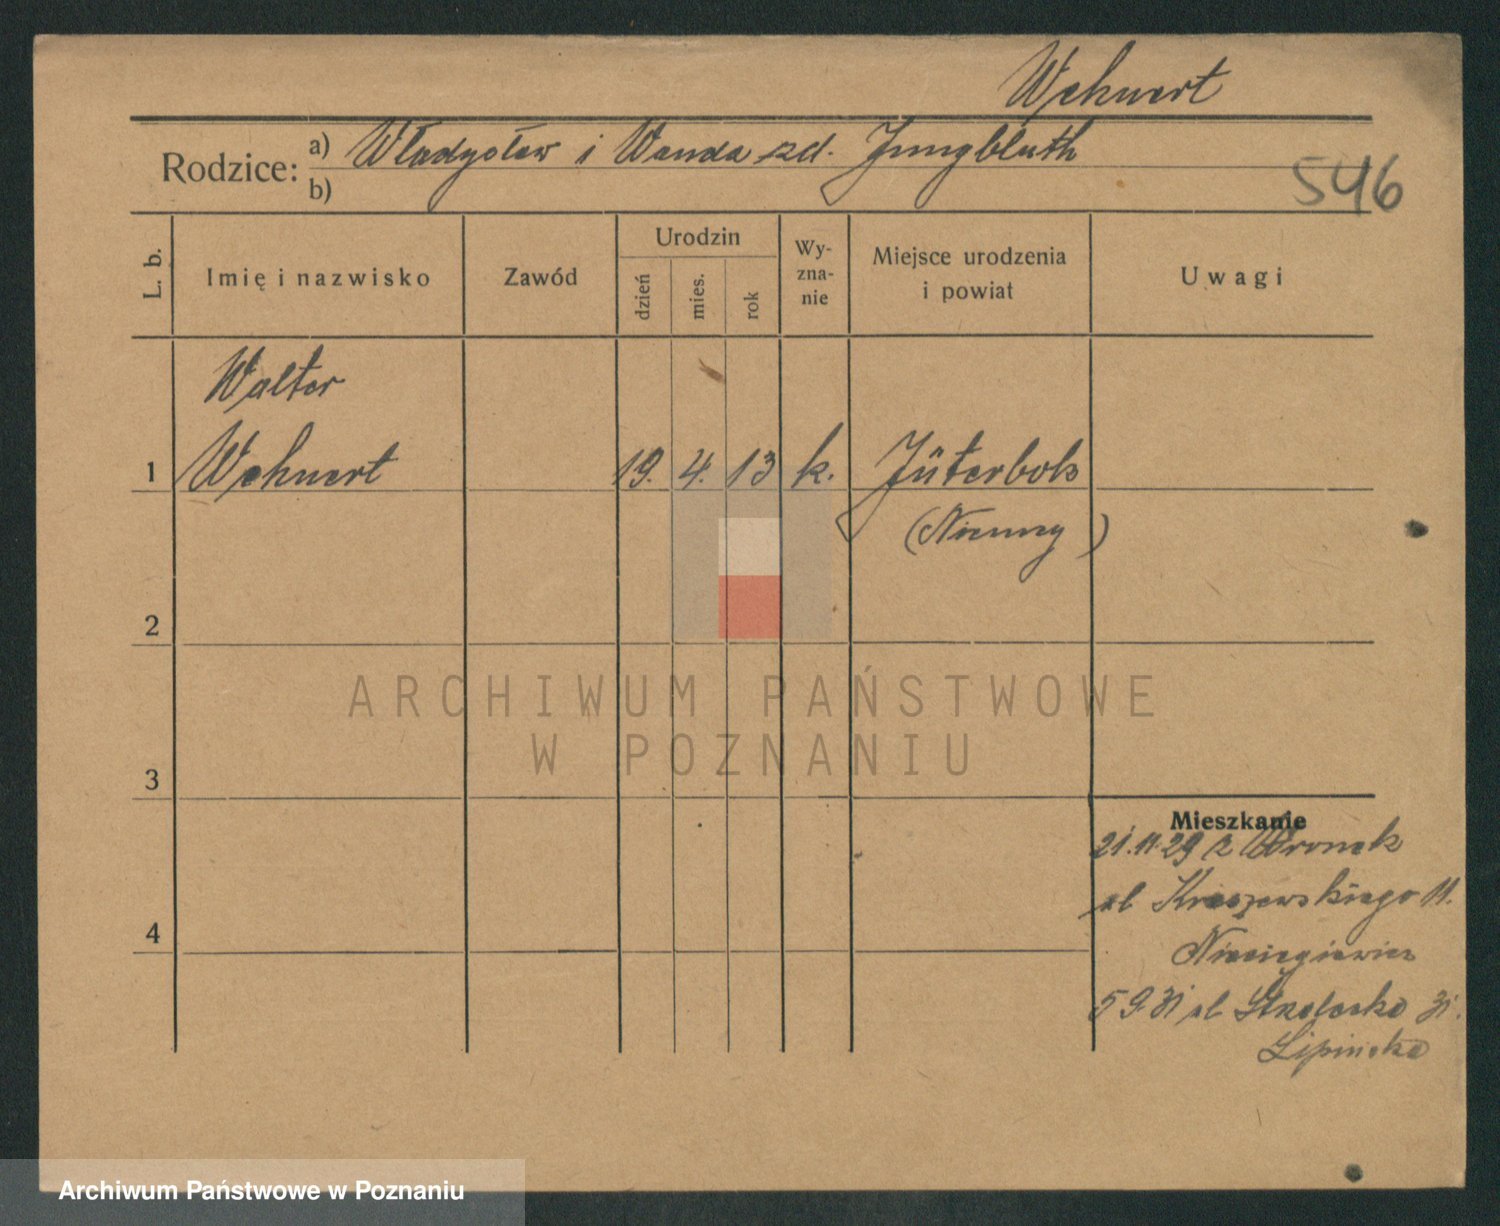 Wehnert
Rodzice: a) Władysław i Wanda zd. Jungbluth
b)
546
L. b.
Imię i nazwisko
Zawód
Urodzin
dzień
mies.
rok
Wy-
zna-
nie
Miejsce urodzenia
i powiat
Uwagi
Walter
1 Wehnert 19. 4. 13 k. Jüterbok
(Niemcy)
2
ARCHIWUM PAŃSTWOWE
W POZNANIU
3
Mieszkanie
21.11.29 z Wronek
ul Kraszewskiego 11.
4
5 9 31 ul Strzelecka 31.
Lipińska
Archiwum Państwowe w Poznaniu